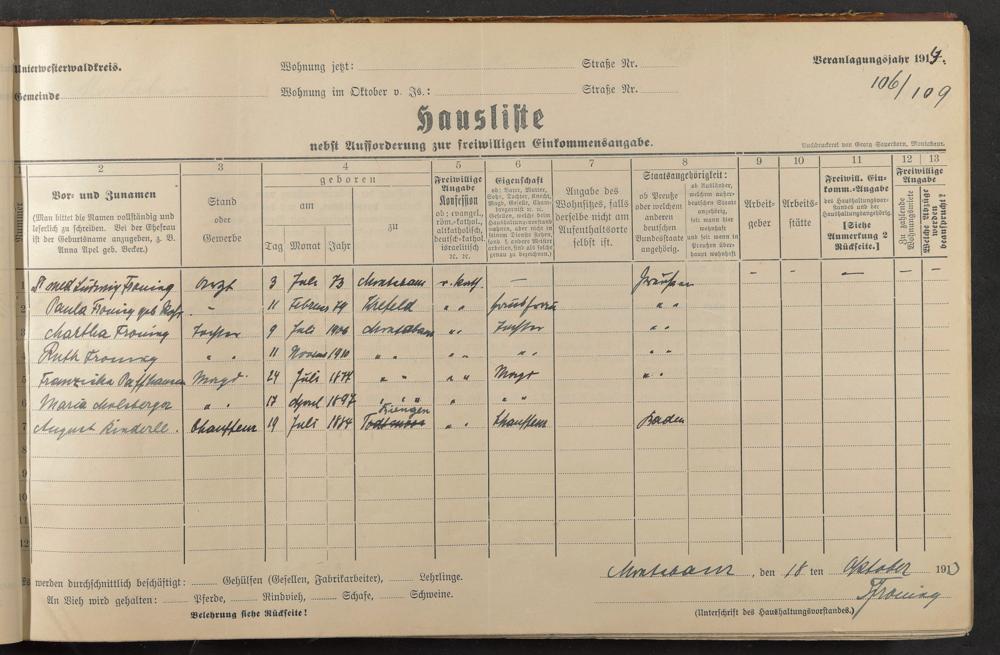 Unterwesterwaldkreis.
Wohnung jetzt: Straße Nr.
Veranlagungsjahr 1914.
Gemeinde
Wohnung im Oktober v. Js.: Straße Nr.
106/109
Hausliste
nebst Aufforderung zur freiwilligen Einkommensangabe.
Buchdruckerei von Georg Sauerborn, Montabaur.
1 2 3 4 5 6 7 8 9 10 11 12 13
Nummer
Vor- und Zunamen
(Man bittet die Namen vollständig und
leserlich zu schreiben. Bei der Ehefrau
ist der Geburtsname anzugeben, z. B.
Anna Apel geb. Becker.)
Stand
oder
Gewerbe
geboren
am
Tag Monat Jahr
zu
Freiwillige
Angabe
Konfession
ob: evangel.,
röm.-kathol.,
altkatholisch,
deutsch-kathol.
israelitisch
2c. 2c.
Eigenschaft
ob: Vater, Mutter,
Sohn, Tochter, Knecht,
Magd, Geselle, Cham-
bregarnist 2c. 2c.
Gesellen, welche dem
Haushaltungsvorstand
wohnen, aber nicht in
seinem Dienste stehen,
und f. andere Meister
arbeiten, sind als solche
genau zu bezeichnen.)
Angabe des
Wohnsitzes, falls
derselbe nicht am
Aufenthaltsorte
selbst ist.
Staatsangehörigkeit:
ob Preuße
oder welchem
anderen
deutschen
Bundesstaate
angehörig.
ob Ausländer,
welchem außer-
deutschen Staate
angehörig,
seit wann hier
und seit wann in
Preußen über-
haupt wohnhaft
Arbeit-
geber
Arbeits-
stätte
Freiwill. Ein-
komm.-Angabe
des Haushaltungsvor-
standes und der
Haushaltungsangehörig.
[Siehe
Anmerkung 2
Rückseite.]
Freiwillige
Angabe
Zu zahlende
Wohnungsmiete
Welche Abzüge
werden
beansprucht?
1 Dr med Ludwig Froning Arzt 3 Juli 73 Montabaur r. kath. — Preußen — — — — —
2 Paula Froning geb. 11 Februar 79 Krefeld " " Hausfrau " "
3 Martha Froning Tochter 9 Juli 1906 Montabaur " " Tochter " "
4 Ruth Froning " " 11 Novem 1910 " " " " " " " "
5 Franziska Paffhausen Magd 24 Juli 1877 " " " " Magd " "
6 Maria Molsberger " " 17 April 1897 " " " " "
7 August Kinderle. Chauffeur 19 Juli 1884 " " Chauffeur Baden
8
9
10
11
12
Es werden durchschnittlich beschäftigt: Gehülfen (Gesellen, Fabrikarbeiter), Lehrlinge.
Montabaur, den 18 ten Oktober 1913
An Vieh wird gehalten: Pferde, Rindvieh, Schafe, Schweine.
Froning
Belehrung siehe Rückseite!
(Unterschrift des Haushaltungsvorstandes.)